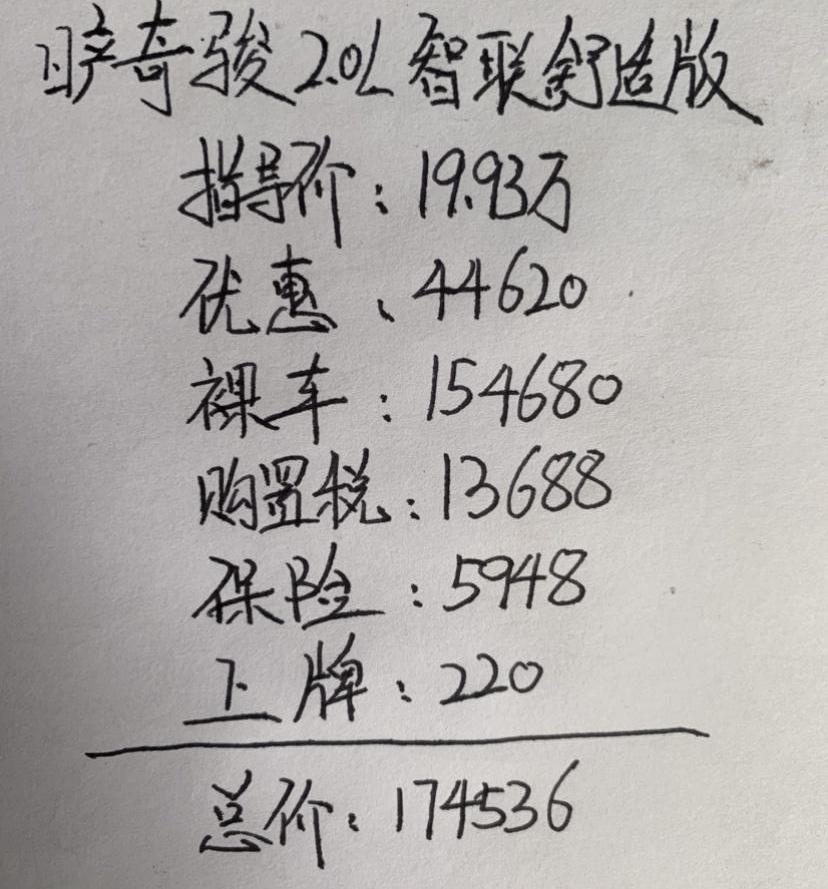 日产奇骏2.0L智联舒适版
指导价：19.93万
优惠、44620
裸车：154680
购置税：13688
保险：5948
上牌：220
总价：174536